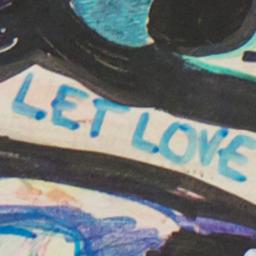 LET LOVE